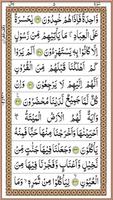 وَّاحِدَةً فَاِذَا هُمْ خٰمِدُوْنَ يٰحَسْرَةً
عَلَى الْعِبَادِ ۚ مَا يَاْتِيْهِمْ مِّنْ رَّسُوْلٍ
اِلَّا كَانُوْا بِهٖ يَسْتَهْزِءُوْنَ اَلَمْ يَرَوْا
كَمْ اَهْلَكْنَا قَبْلَهُمْ مِّنَ الْقُرُوْنِ
اَنَّهُمْ اِلَيْهِمْ لَا يَرْجِعُوْنَ وَاِنْ
كُلٌّ لَّمَّا جَمِيْعٌ لَّدَيْنَا مُحْضَرُوْنَ وَاٰيَةٌ
لَّهُمُ الْاَرْضُ الْمَيْتَةُ ۖ اَحْيَيْنٰهَا وَاَخْرَجْنَا
مِنْهَا حَبًّا فَمِنْهُ يَاْكُلُوْنَ وَجَعَلْنَا فِيْهَا
جَنّٰتٍ مِّنْ نَّخِيْلٍ وَّاَعْنَابٍ وَّفَجَّرْنَا فِيْهَا مِنَ
الْعُيُوْنِ لِيَاْكُلُوْا مِنْ ثَمَرِهٖ ۙ وَمَا